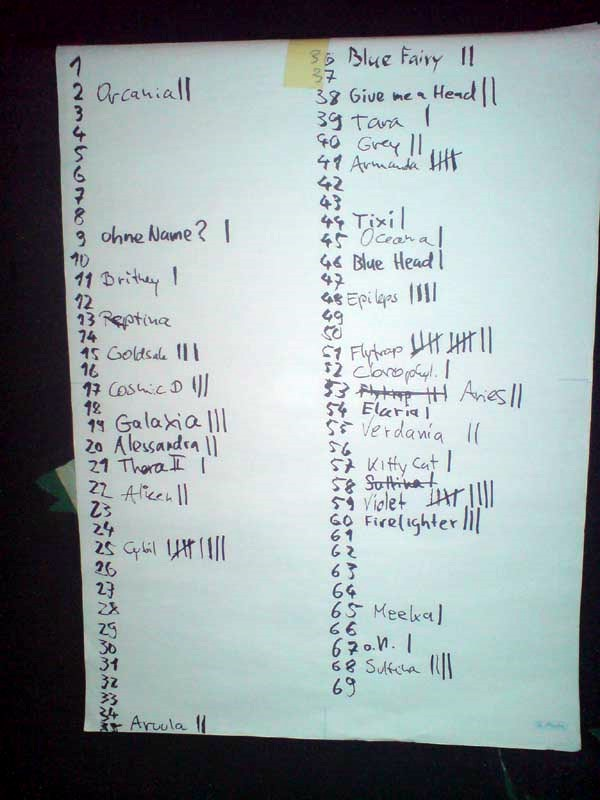 1
2 Orcania ||
3
4
5
6
7
8
9 ohne Name? |
10
11 Brithey |
12
13 Reptina
14
15 Goldsale |||
16
17 Cosmic D |||
18
19 Galaxia |||
20 Alessandra ||
21 Thora II |
22 Alicen ||
23
24
25 Cybil |||| ||||
26
27
28
29
30
31
32
33
34
35 Aruula ||
36 Blue Fairy ||
37
38 Give me a Head ||
39 Tara |
40 Grey ||
41 Armanda ||||
42
43
44 Tixi |
45 Oceana |
46 Blue Head |
47
48 Epileps ||||
49
50
51 Flytrap |||| |||| ||
52 Clorophyl. |
53 Flytrap ||| Aries ||
54 Elaria |
55 Verdania ||
56
57 Kitty Cat |
58 Sulfina |
59 Violet |||| ||||
60 Firefighter |||
61
62
63
64
65 Meelxa |
66
67 o.N. |
68 Sulfina ||||
69